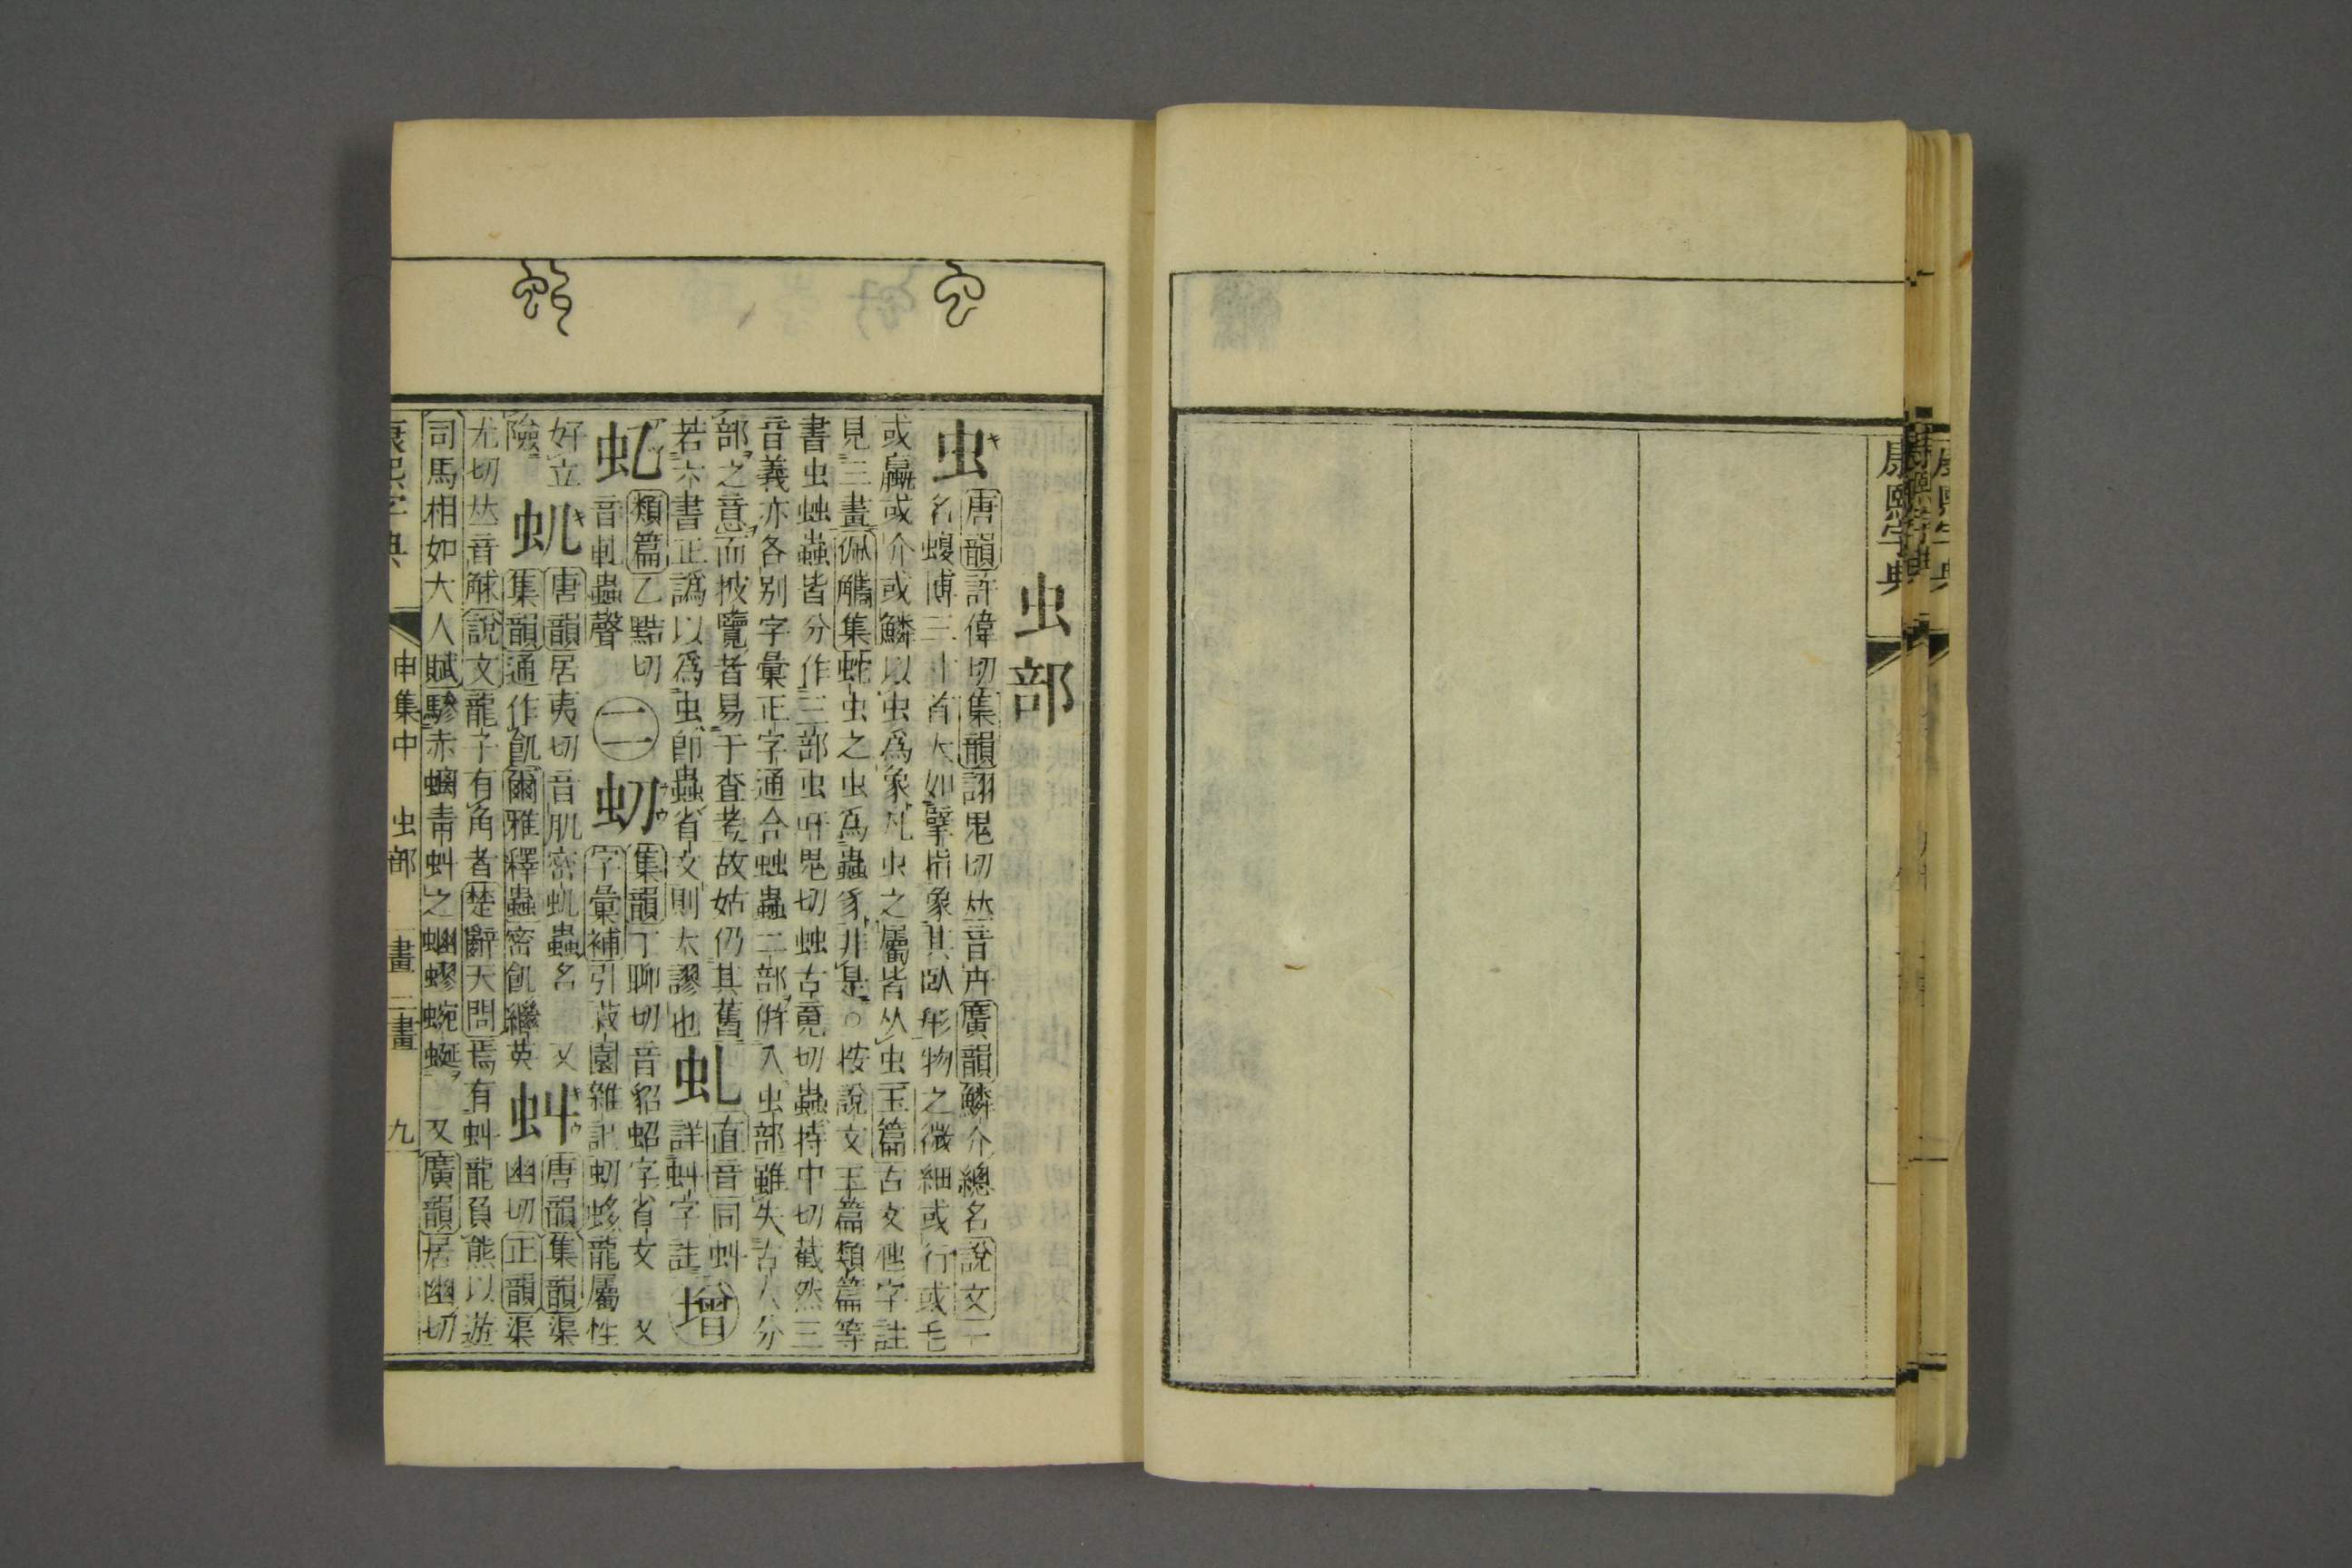 虫部
虫
唐韻許偉切集韻詡鬼切𠀤音卉廣韻鱗介總名說文一
名蝮博三寸首大如擘指象其臥形物之微細或行或毛
或蠃或介或鱗以虫爲象凡虫之屬皆从虫玉篇古文虺字註
見三畫佩觿集蛇虫之虫爲蟲豸非是○按說文玉篇類篇等
書虫䖵蟲皆分作三部虫吁鬼切䖵古䰟切蟲持中切截然三
音義亦各別字彙正字通合䖵蟲二部併入虫部雖失古人分
部之意而披覽者易于查考故姑仍其舊
若六書正譌以爲虫卽蟲省文則大謬也
虬
直音同虯
詳虯字註
增
虴
類篇乙黠切
音軋蟲聲
二
虭
集韻丁聊切音貂蛁字省文 又
字彙補引菽園雜記虭龍屬性
好立
險
虮
唐韻居夷切音肌密虮蟲名 又
集韻通作飢爾雅釋蟲密飢繼英
虯
唐韻集韻渠
幽切正韻渠
尤切𠀤音觩說文龍子有角者楚辭天問焉有虯龍負熊以遊
司馬相如大人賦驂赤螭靑虯之蚴蟉蜿蜒 又廣韻居幽切
康熙字典 申集中 虫部 一畫 二畫 九
康熙字典